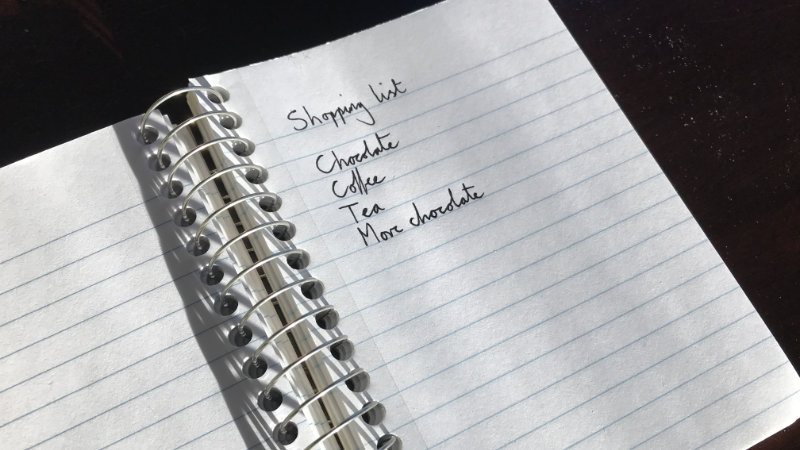 Shopping list
Chocolate
Coffee
Tea
More chocolate